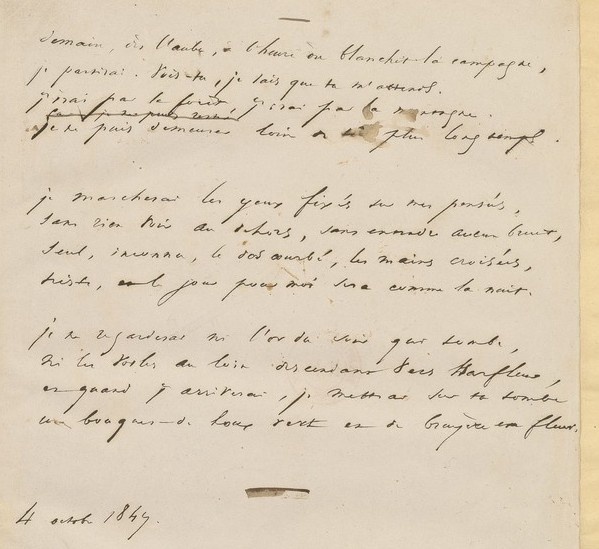 demain, dès l'aube, à l'heure où blanchit la campagne,
je partirai. Vois-tu, je sais que tu m'attends.
j'irai par la forêt, j'irai par la montagne.
je ne puis rester
je ne puis demeurer loin de toi plus longtemps.
je marcherai les yeux fixés sur mes pensées,
sans rien voir au dehors, sans entendre aucun bruit,
seul, inconnu, le dos courbé, les mains croisées,
triste, et le jour pour moi sera comme la nuit.
je ne regarderai ni l'or du soir qui tombe,
ni les voiles au loin descendant vers Harfleur,
et quand j'arriverai, je mettrai sur ta tombe
un bouquet de houx vert et de bruyère en fleur.
4 octobre 1847.